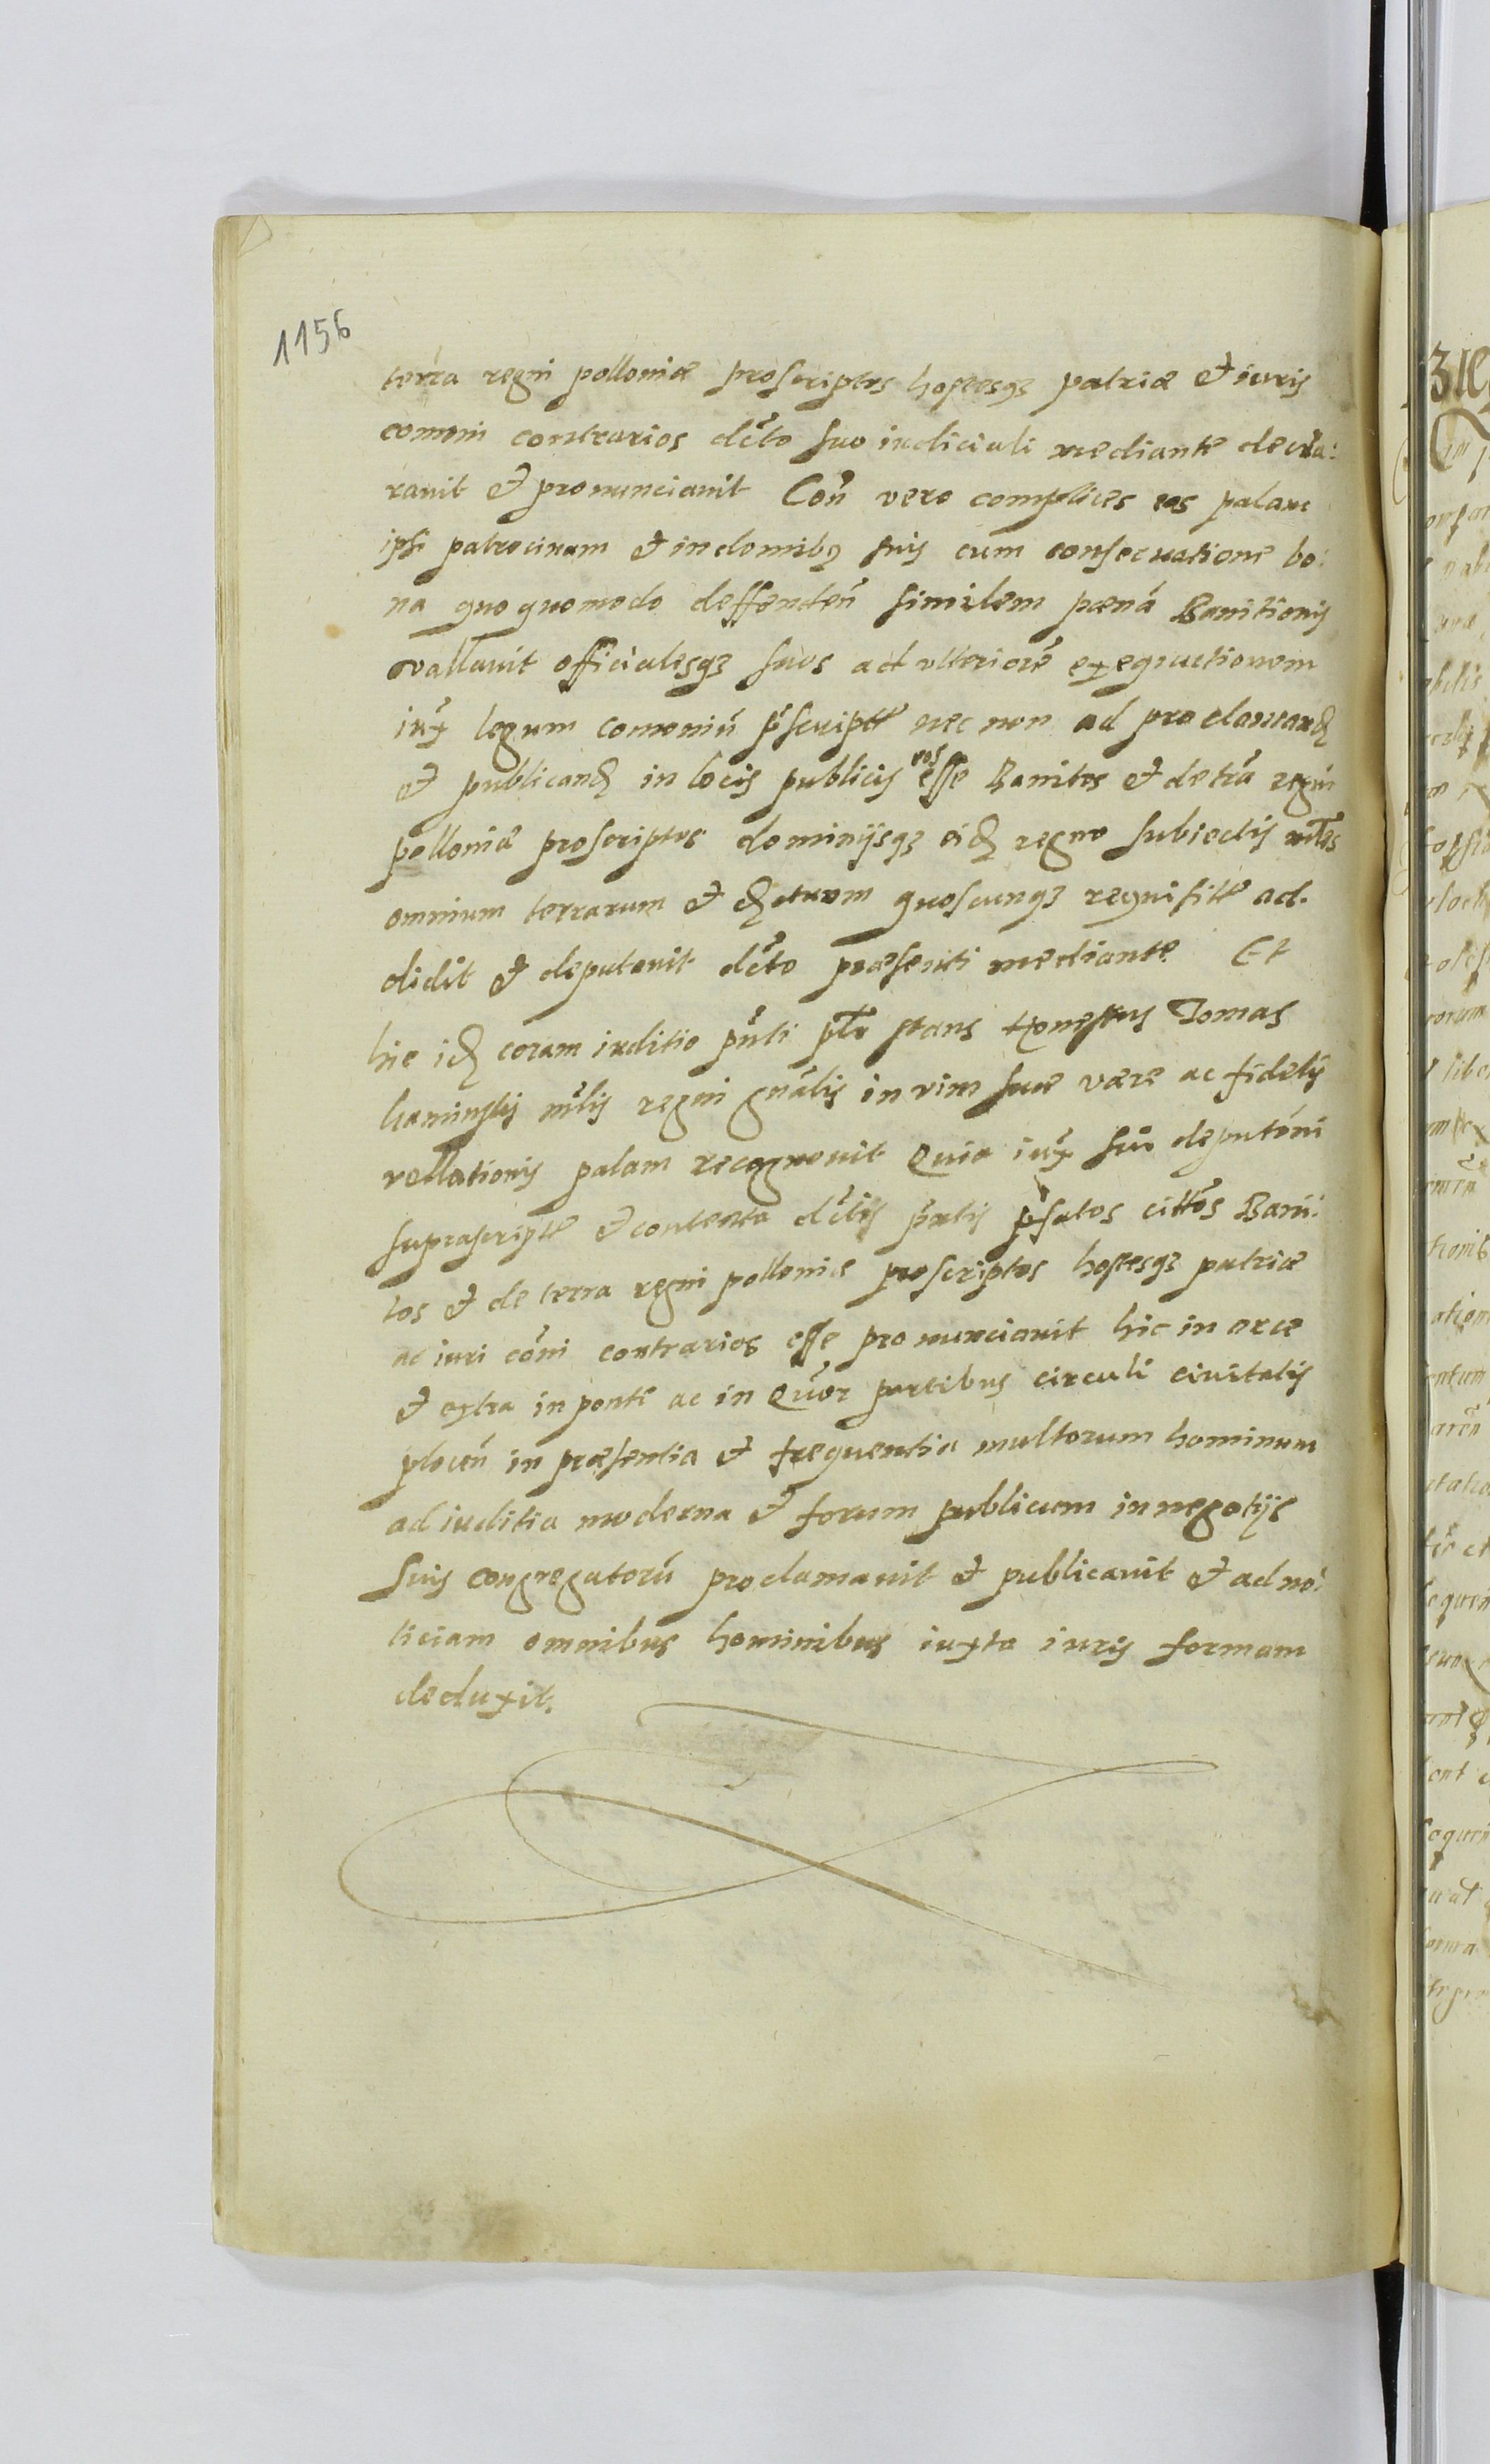 1156
terra regni polloniæ proscriptos hostesqꝫ patriæ et iuris
comoni contrarios dcto suo iudiciali mediante decla:
ravit et pronunciavit Con vero complices eos palam
ipsi patrocinam et in domibꝫ suis cum conservatione bo:
na quoquomodo deffenden similem pæna Banitionis
vallavit officialesqꝫ suos ad ulteriore exequutionem
iux legum comoniu pscript nec non ad proclamand
et publicand in locis publicis eos esse Banitos et de tra regni
polloniæ proscriptos dominijsqꝫ eid regno subiectis mltes
omnium terrarum et quoscunqꝫ requisit ad.
didit et deputavit dcto præsenti mediante Et
hic id coram iuditio pnti ptr stans honestus Tomas
kaminski mlis regni gnalis in vim suæ veræ ac fidelis
rellationis palam recognovit Quia iux sui deputoni
suprascript et contenta dctis pntis pfatos cittos Bani:
tos et de terra regni polloniæ proscriptos hostesqꝫ patriæ
ac iuri coni contrarios esse pronunciavit hic in arce
et extra in ponte ac in Quor partibus circuli civitatis
plocen in præsentia et frequentia multorum hominum
ad iuditia moderna et forum publicum in negotijs
suis congregatoru proclamavit et publicavit et ad no:
ticiam omnibus hominibus iuxta iuris formam
deduxit.